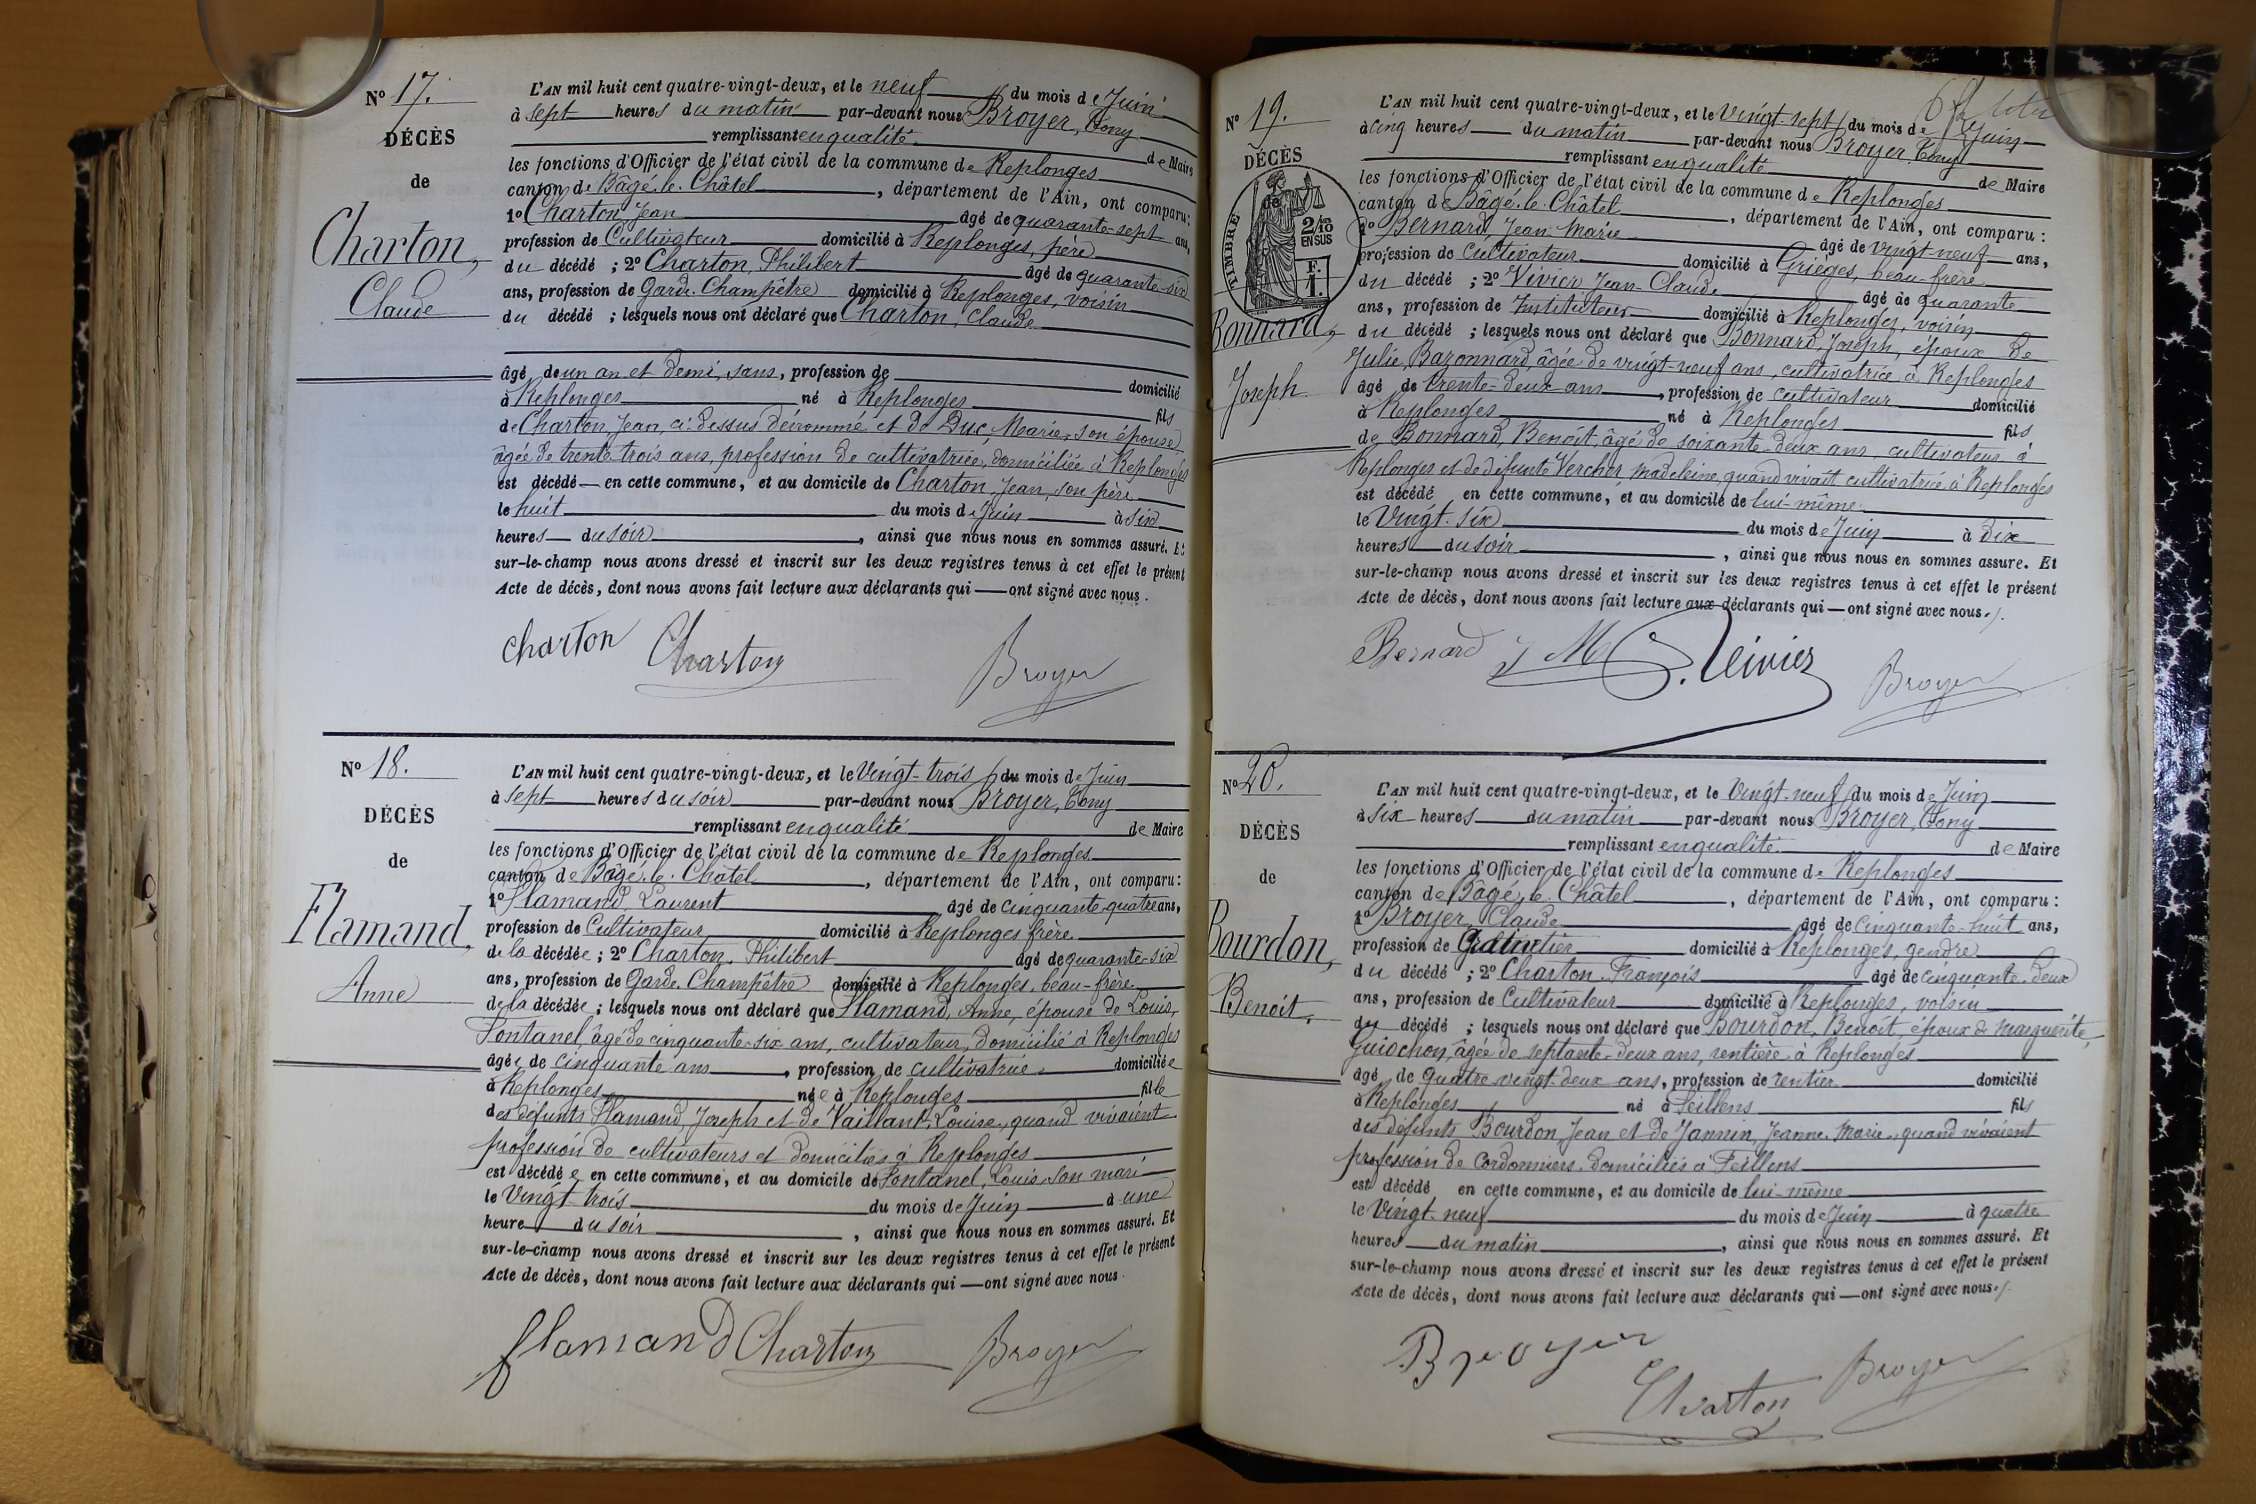 N° 17.
DÉCÈS
de
Charton,
Claude
L'AN mil huit cent quatre-vingt-deux, et le neuf du mois de Juin
à sept heures du matin par-devant nous Broyer, Tony
remplissant en qualité de Maire
les fonctions d'Officier de l'état civil de la commune de Replonges
canton de Bâgé-le-Châtel, département de l'Ain, ont comparu:
1° Charton, Jean âgé de quarante-sept ans,
profession de Cultivateur domicilié à Replonges, père
du décédé ; 2° Charton, Philibert âgé de quarante-six
ans, profession de Garde-Champêtre domicilié à Replonges, voisin
du décédé ; lesquels nous ont déclaré que Charton, Claude
âgé de un an et demi, sans, profession de domicilié
à Replonges né à Replonges fils
de Charton, Jean, ci-dessus dénommé et de Duc, Marie, son épouse,
âgée de trente-trois ans, profession de cultivatrice, domiciliée à Replonges
est décédé en cette commune, et au domicile de Charton, Jean, son père
le huit du mois de Juin à six
heures du soir, ainsi que nous nous en sommes assuré. Et
sur-le-champ nous avons dressé et inscrit sur les deux registres tenus à cet effet le présent
Acte de décès, dont nous avons fait lecture aux déclarants qui ont signé avec nous.
charton Charton Broyer
N° 18.
DÉCÈS
de
Flamand,
Anne
L'AN mil huit cent quatre-vingt-deux, et le Vingt-trois du mois de Juin
à sept heures du soir par-devant nous Broyer, Tony
remplissant en qualité de Maire
les fonctions d'Officier de l'état civil de la commune de Replonges
canton de Bâgé-le-Châtel, département de l'Ain, ont comparu:
1° Flamand, Laurent âgé de cinquante-quatre ans,
profession de Cultivateur domicilié à Replonges frère
de la décédée ; 2° Charton, Philibert âgé de quarante-six
ans, profession de Garde-Champêtre domicilié à Replonges, beau-frère
de la décédée ; lesquels nous ont déclaré que Flamand, Anne, épouse de Louis,
Fontanel, âgé de cinquante-six ans, cultivateur, domicilié à Replonges
âgée de cinquante ans, profession de cultivatrice domiciliée
à Replonges née à Replonges fille
des défunts Flamand, Joseph et de Vaillant, Louise, quand vivaient
profession de cultivateurs et domiciliés à Replonges
est décédée en cette commune, et au domicile de Fontanel, Louis son mari
le Vingt-trois du mois de Juin à une
heure du soir, ainsi que nous nous en sommes assuré. Et
sur-le-champ nous avons dressé et inscrit sur les deux registres tenus à cet effet le présent
Acte de décès, dont nous avons fait lecture aux déclarants qui ont signé avec nous.
flamand Charton Broyer
N° 19.
DÉCÈS
de
TIMBRE
2/10
EN SUS
F.
1.
Bonnard,
Joseph
L'AN mil huit cent quatre-vingt-deux, et le Vingt-sept du mois de Juin
à cinq heures du matin par-devant nous Broyer Tony
remplissant en qualité de Maire
les fonctions d'Officier de l'état civil de la commune de Replonges
canton de Bâgé-le-Châtel, département de l'Ain, ont comparu :
1° Bernard, Jean Marie âgé de vingt-neuf ans,
profession de cultivateur domicilié à Grièges, beau-frère
du décédé ; 2° Vivier Jean-Claude âgé de quarante
ans, profession de Instituteur domicilié à Replonges, voisin
du décédé ; lesquels nous ont déclaré que Bonnard, Joseph, époux de
Julie Bazonnard, âgée de vingt-neuf ans, cultivatrice à Replonges
âgé de trente-deux ans, profession de cultivateur domicilié
à Replonges né à Replonges fils
de Bonnard, Benoît, âgé de soixante-deux ans, cultivateur à
Replonges et de défunte Verchèr madeleine, quand vivait cultivatrice à Replonges
est décédé en cette commune, et au domicile de lui-même
le Vingt-six du mois de Juin à dix
heures du soir, ainsi que nous nous en sommes assuré. Et
sur-le-champ nous avons dressé et inscrit sur les deux registres tenus à cet effet le présent
Acte de décès, dont nous avons fait lecture aux déclarants qui ont signé avec nous.
Bernard J M Vivier Broyer
N° 20.
DÉCÈS
de
Bourdon,
Benoît,
L'AN mil huit cent quatre-vingt-deux, et le Vingt-neuf du mois de Juin
à six heures du matin par-devant nous Broyer, Tony
remplissant en qualité de Maire
les fonctions d'Officier de l'état civil de la commune de Replonges
canton de Bâgé-le-Châtel, département de l'Ain, ont comparu :
1° Broyer, Claude âgé de cinquante-huit ans,
profession de domicilié à Replonges, gendre
du décédé ; 2° Charton François âgé de cinquante-deux
ans, profession de Cultivateur domicilié à Replonges, voisin
du décédé ; lesquels nous ont déclaré que Bourdon, Benoît, époux de Marguerite
Guiochon, âgée de septante-deux ans, rentière à Replonges
âgé de quatre vingt deux ans, profession de rentier domicilié
à Replonges né à Feillens fils
des défunts Bourdon Jean et de Jannin, Jeanne-Marie, quand vivaient
profession de Cordonniers domiciliés à Feillens
est décédé en cette commune, et au domicile de lui-même
le Vingt-neuf du mois de Juin à quatre
heures du matin, ainsi que nous nous en sommes assuré. Et
sur-le-champ nous avons dressé et inscrit sur les deux registres tenus à cet effet le présent
Acte de décès, dont nous avons fait lecture aux déclarants qui ont signé avec nous.
Broyer Charton Broyer